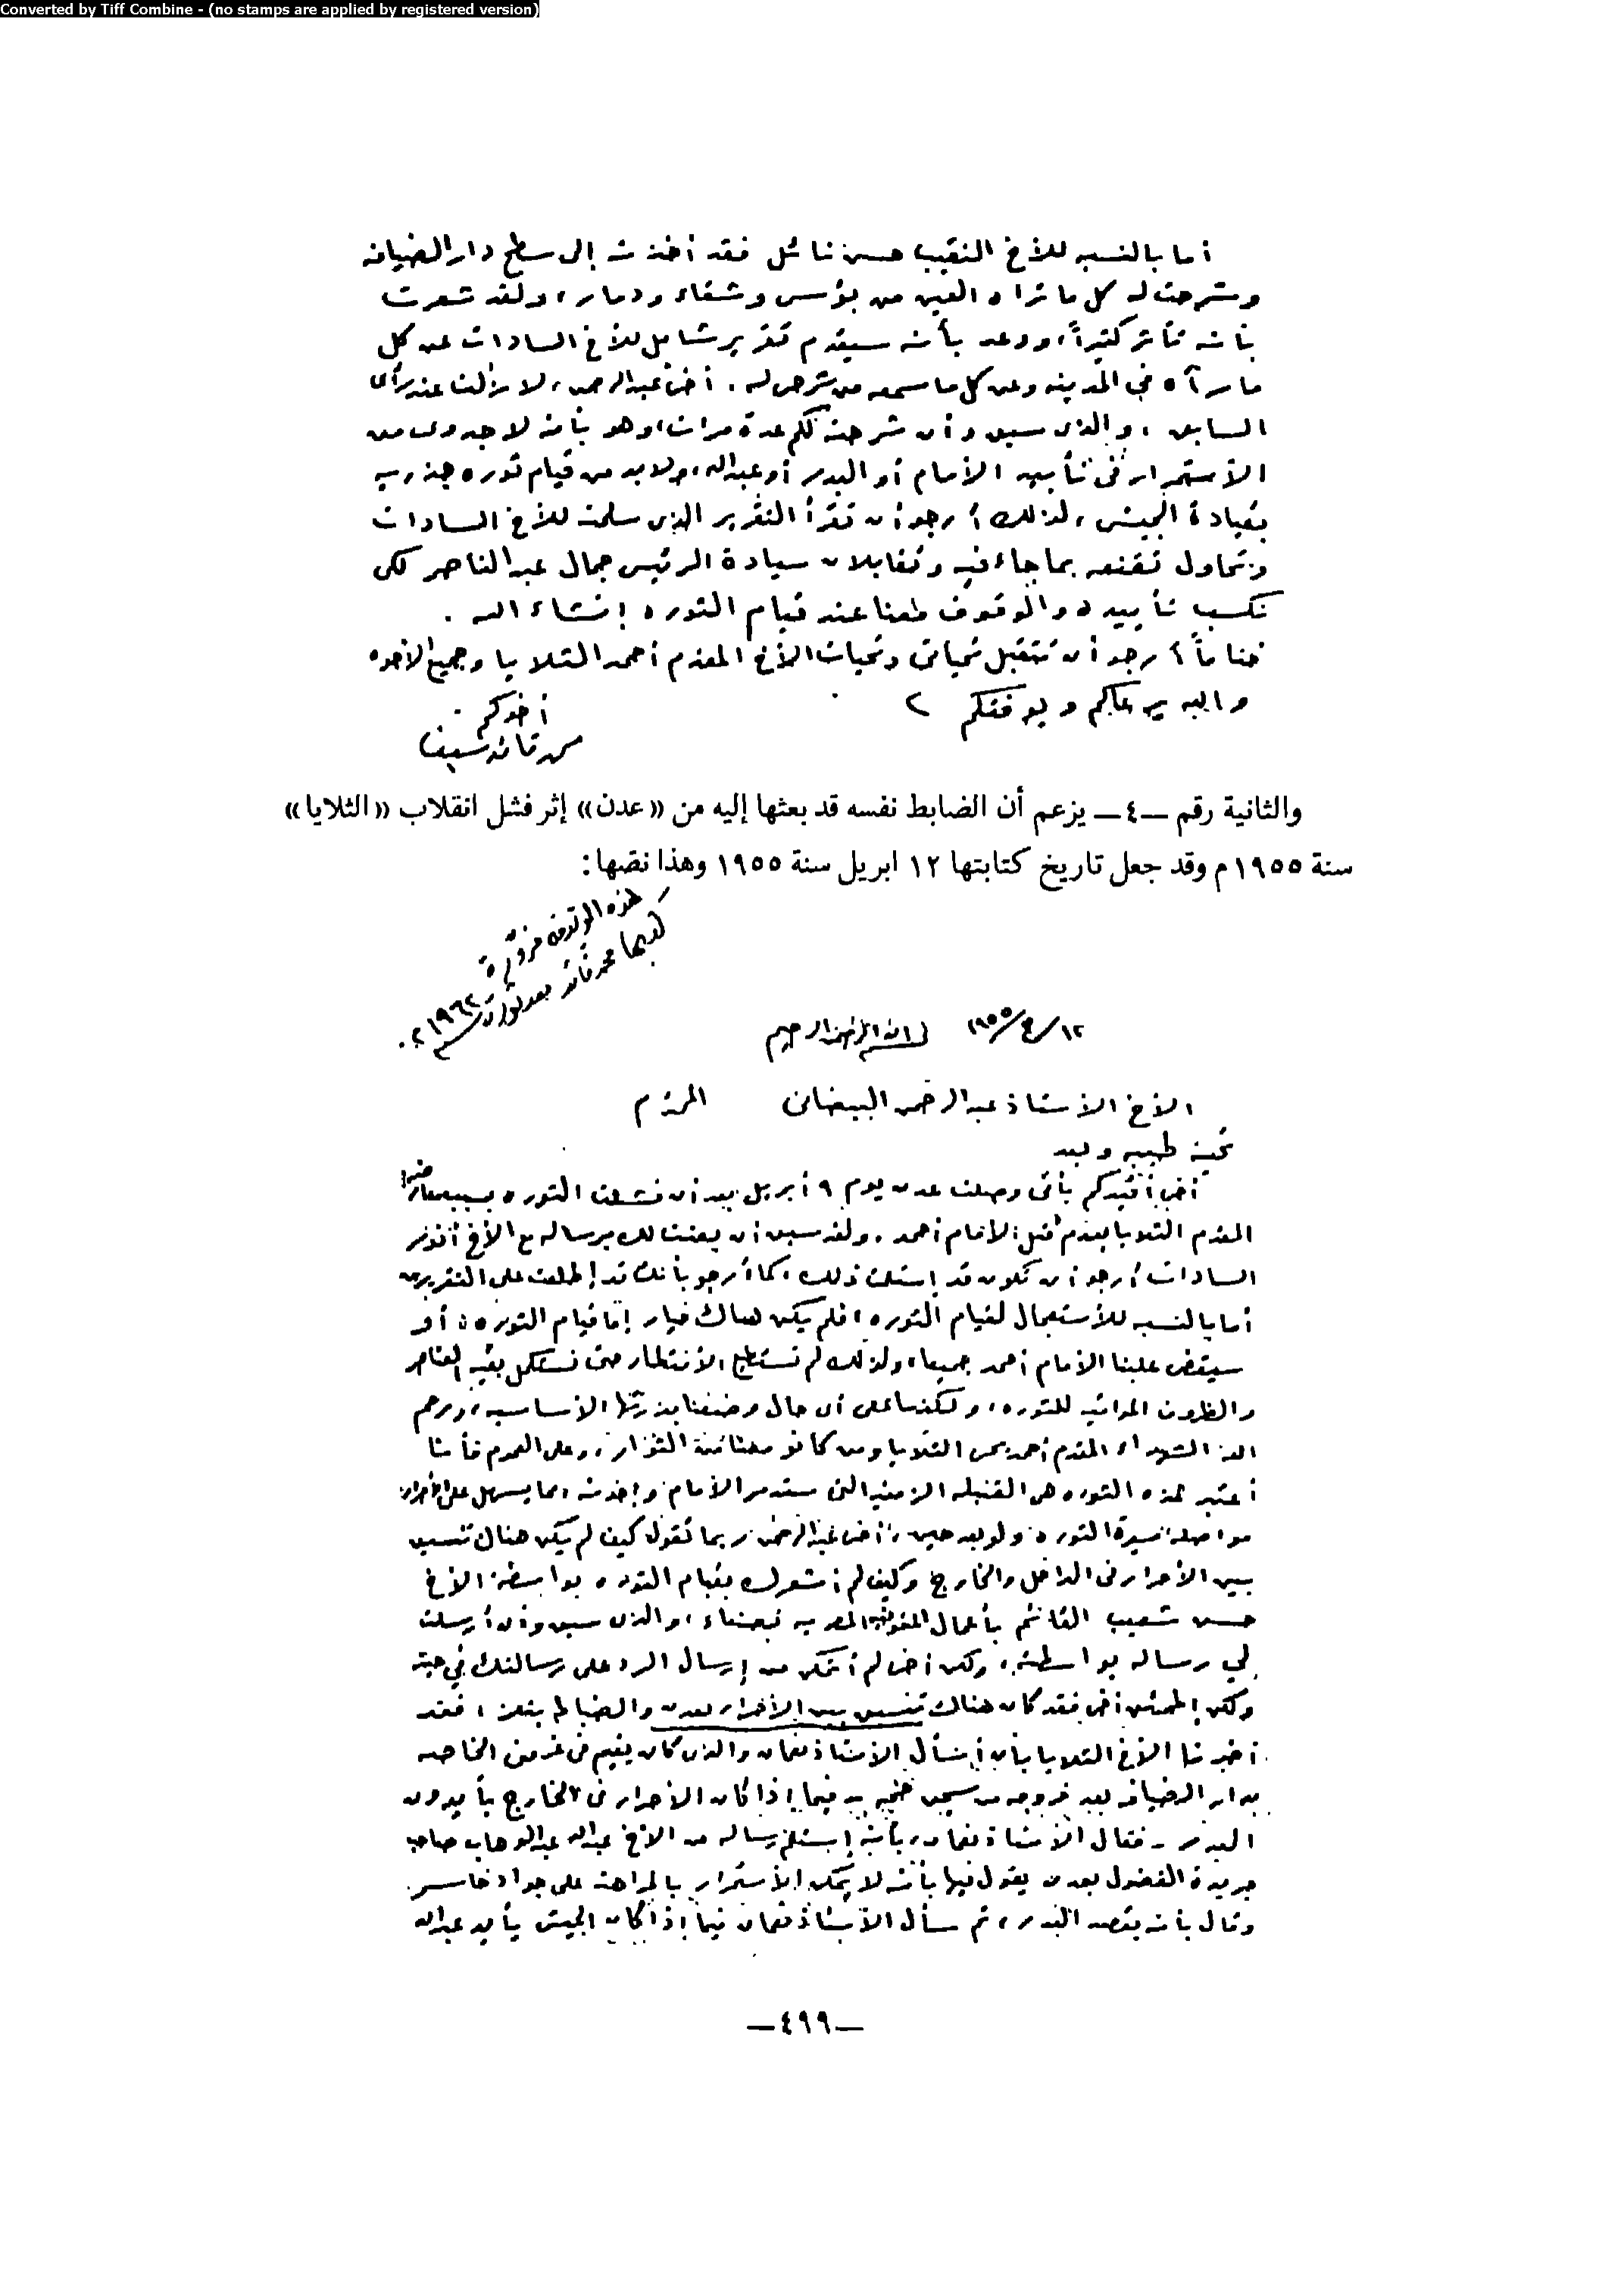 Converted by Tiff Combine - (no stamps are applied by registered version)
أما بالنسبه للأخ النقيب حسن نائل فقد أخذته إلى سطح دار الضيافه
وشرحت له كل ما تراه العين من بؤس وشقاء ودمار، ولقد شعرت
بأنه تأثر كثيراً، ووعد بأنه سيقدم تقرير شامل للأخ السادات عن كل
ما رآه في المدينه وعن كل ما سمعه من شرحى له. أخى عبدالرحمن، لا زلت عند رأى
السابق، والذى سبق وأن شرحته لكم عدة مرات، وهو بأنه لا جدوى من
الأستمرار فى تأييد الأمام أو البدر أو عبدالله، ولابد من قيام ثوره جذريه
بقيادة الجيش، لذلك أرجو أن تقرأ التقرير الذى سلمته للأخ السادات
وتحاول تقنعه بما جاء فيه وتقابلان سيادة الرئيس جمال عبدالناصر لكى
نكسب تأييده والوقوف معنا عند قيام الثوره إنشاء الله.
ختاماً أرجو أن تتقبل تحياتى وتحيات الأخ المقدم أحمد الثلايا وجميع الأخوه
والله يرعاكم ويوفقكم
أخوكم
قائد سيف
والثانية رقم —٤— يزعم أن الضابط نفسه قد بعثها إليه من «عدن» إثر فشل انقلاب «الثلايا»
سنة ١٩٥٥م وقد جعل تاريخ كتابتها ١٢ ابريل سنة ١٩٥٥ وهذا نصها:
هذه الوثيقة مزوّرة
كتبها محمد قائد بعد ثورة
١٩٦٢م.
١٢/٤/١٩٥٥ بسم الله الرحمن الرحيم
الأخ الأستاذ عبدالرحمن البيضانى المحترم
تحيه طيبه وبعد
أخى أفيدكم بأنى وصلت عدن يوم ٩ أبريل بعد أن فشلت الثوره بسبب معارضة
المقدم الثلايا بعدم قتل الأمام أحمد. ولقد سبق أن بعثت لك برساله مع الأخ أنور
السادات أرجو أن تكون قد إستلمت ذلك، كما أرجو بأنك قد إطلعت على التقرير،
أما بالنسبه للأستعجال لقيام الثوره، فلم يكن هناك خيار إما قيام الثوره، أو
سيقضى علينا الأمام أحمد جميعاً، ولذلك لم نستطع الأنتظار حتى نستكمل بقية العناصر
والظروف المواتيه للثوره، ولكننا على أى حال وضعنا بذرتها الأساسيه، ورحم
الله الشهداء المقدم أحمد يحى الثلايا ومن كانو معنا من الثوار، وعلى العموم فأننا
أعتبر هذه الثوره هى القنبله الزمنيه التى ستدمر الأمام وإخوته، مما يسهل على الأحرار
مواصلة مسيرة الثوره ولو بعد حين، أخى عبدالرحمن ربما تقول كيف لم يكن هناك تنسيق
بين الأحرار فى الداخل والخارج وكيف لم أشعرك بقيام الثوره بواسطة الأخ
حسن شعيب القائم بأعمال المفوضيه المصريه بصنعاء، والذى سبق وأن أرسلت
لي رساله بواسطته، ولكن أخى لم أتمكن من إرسال الرد على رسالتك في حينه
ولكن إطمئن أخى فقد كان هناك تنسيق بين الأحرار بعدن والضباط بتعز، فقد
أخبرنا الأخ الثلايا بأن أسأل الأستاذ نعمان والذى كان يقيم فى غرفتى الخاصه
بدار الضيافه بعد خروجه من سجن حجه - فيما إذا كان الأحرار فى الخارج يأيدون
البدر - فقال الأستاذ نعمان، بأنه إستلم رساله من الأخ عبدالله عبدالوهاب صاحب
جريدة الفضول بعدن يقول فيها بأنه لا يمكن الأستمرار بالمراهنه على جواد خاسر
وقال بأنه يقصد البدر، ثم سأل الأستاذ نعمان فيما إذا كان الجيش يأيد عبدالله
—٤٩٩—